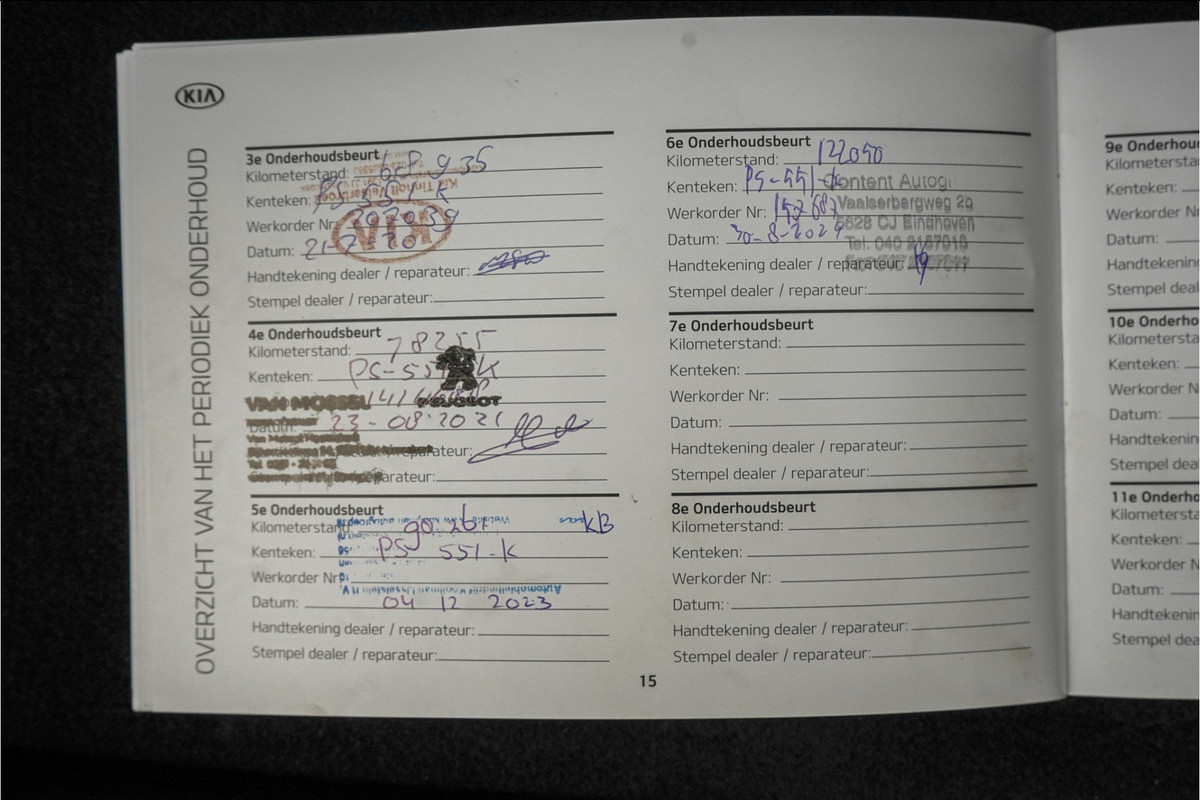 KIA
OVERZICHT VAN HET PERIODIEK ONDERHOUD
3e Onderhoudsbeurt
Kilometerstand: 68935
Kenteken: PS-551-K
Werkorder Nr:
KIA
Datum:
Handtekening dealer / reparateur:
Stempel dealer / reparateur:
4e Onderhoudsbeurt
Kilometerstand: 78255
Kenteken: PS-55 K
VAN MOSSEL PEUGEOT
Datum: 23-08-2021
reparateur:
reparateur:
5e Onderhoudsbeurt
Kilometerstand: KB
Kenteken: PS 551-K
Werkorder Nr:
Datum: 04 12 2023
Handtekening dealer / reparateur:
Stempel dealer / reparateur:
6e Onderhoudsbeurt
Kilometerstand: 122090
Kenteken: PS-551-K Content Autogr
Werkorder Nr: Vaalserbergweg 2b
5628 CJ Eindhoven
Datum: 30-8-2024
Tel. 040
Handtekening dealer / reparateur:
Stempel dealer / reparateur:
7e Onderhoudsbeurt
Kilometerstand:
Kenteken:
Werkorder Nr:
Datum:
Handtekening dealer / reparateur:
Stempel dealer / reparateur:
8e Onderhoudsbeurt
Kilometerstand:
Kenteken:
Werkorder Nr:
Datum:
Handtekening dealer / reparateur:
Stempel dealer / reparateur:
15
9e Onderhou
Kilometersta
Kenteken:
Werkorder Nr
Datum:
Handtekening
Stempel deal
10e Onderho
Kilometersta
Kenteken:
Werkorder Nr
Datum:
Handtekening
Stempel dea
11e Onderho
Kilometersta
Kenteken:
Werkorder N
Datum:
Handtekenin
Stempel dea